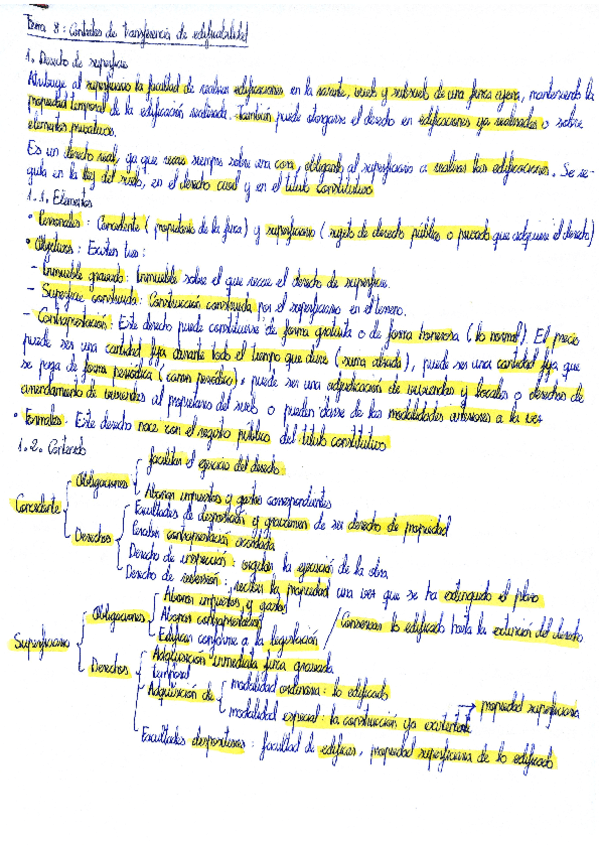 Tema 8: Contratos de transferencia de edificabilidad
1. Derecho de superficie
Atribuye al superficiario la facultad de realizar edificaciones en la rasante, vuelo y subsuelo de una finca ajena, manteniendo la
propiedad temporal de la edificación realizada. También puede otorgarse el derecho en edificaciones ya realizadas o sobre
elementos privativos.
Es un derecho real, ya que recae siempre sobre una cosa, obligando al superficiario a realizar las edificaciones. Se re-
gula en la ley del suelo, en el derecho civil y en el título constitutivo
1.1. Elementos
• Personales: Concedente (propietario de la finca) y superficiario (sujeto de derecho público o privado que adquiere el derecho)
• Objetivos: Existen tres:
- Inmueble gravado: Inmueble sobre el que recae el derecho de superficie.
- Superficie construida: Construcción construida por el superficiario en el terreno.
- Contraprestación: Este derecho puede constituirse de forma gratuita o de forma honerosa (lo normal). El precio
puede ser una cantidad fija durante todo el tiempo que dure (suma alzada), puede ser una cantidad fija que
se paga de forma periódica (canon periódico), puede ser una adjudicación de viviendas y locales o derechos de
arrendamiento de viviendas al propietario del suelo o pueden darse de las modalidades anteriores a la vez
• Formales: Este derecho nace con el registro público del título constitutivo
1.2. Contenido
Concedente
Obligaciones
facilitar el ejercicio del derecho
Abonar impuestos y gastos correspondientes
Derechos
Facultades de disposición y gravamen de ser derecho de propiedad
Percibir contraprestación acordada
Derecho de inspección: vigilar la ejecución de la obra
Derecho de reversión: recibir la propiedad una vez que se ha extinguido el plazo
Superficiario
Obligaciones
Abonar impuestos y gastos
Abonar contraprestación
Edificar conforme a la legislación / Conservar lo edificado hasta la extinción del derecho
Derechos
Adquisición inmediata finca gravada
temporal
Adquisición de
modalidad ordinaria: lo edificado
modalidad especial: la construcción ya existente
→ propiedad superficiaria
Facultades dispositivas: facultad de edificar, propiedad superficiaria de lo edificado